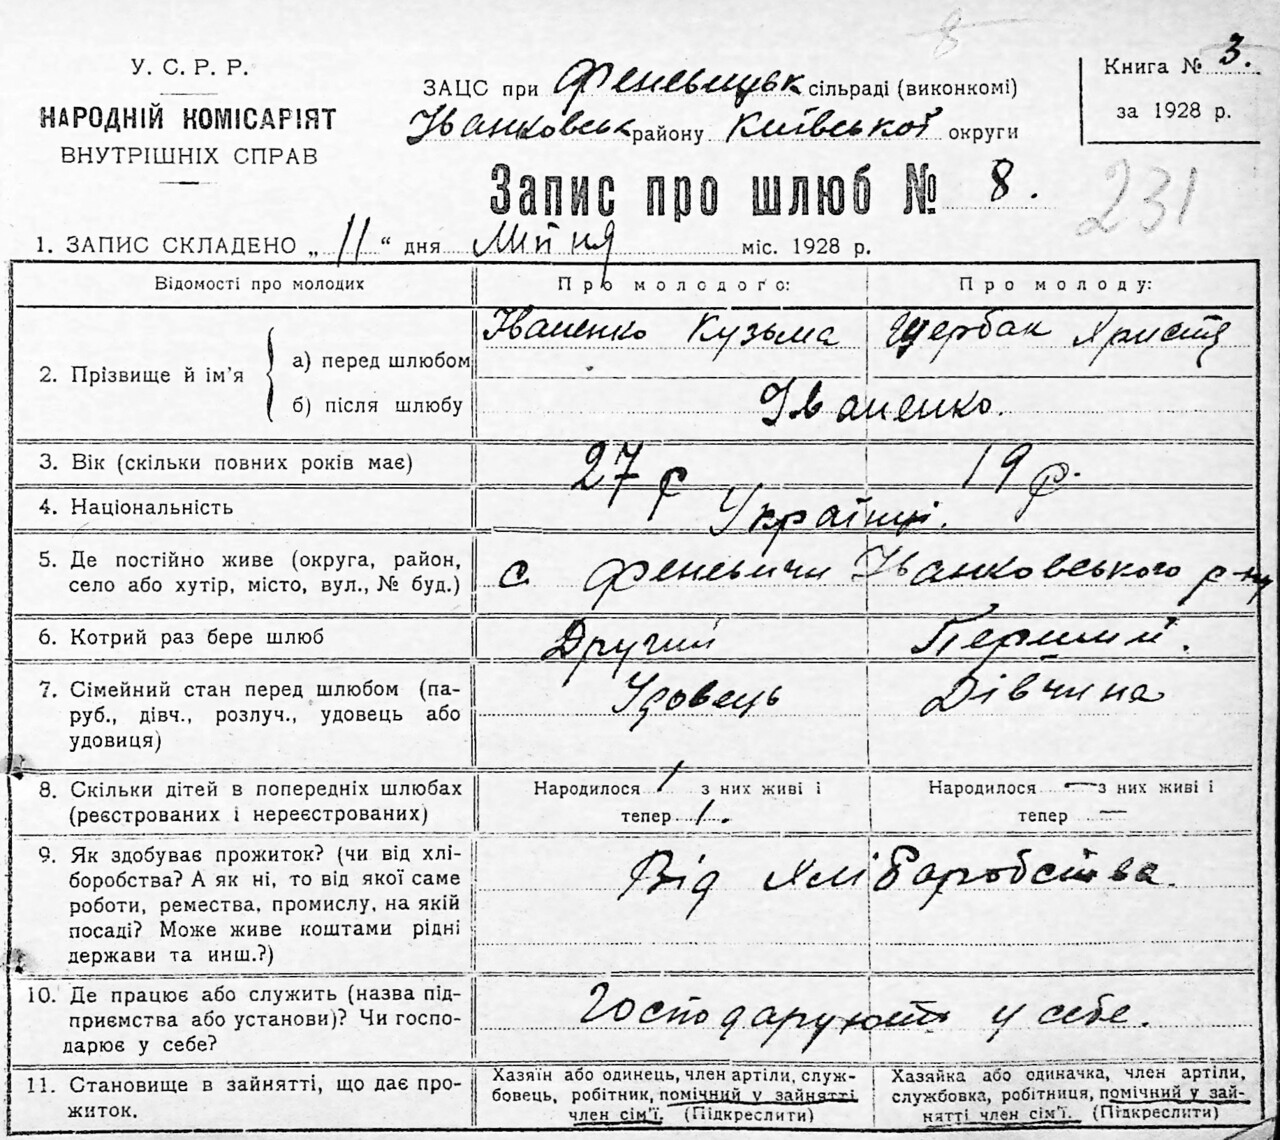 8
У. С. Р. Р.
НАРОДНІЙ КОМІСАРІЯТ
ВНУТРІШНІХ СПРАВ
ЗАЦС при Феневицьк сільраді (виконкомі)
Іванковськ району Київської округи
Книга № 3.
за 1928 р.
Запис про шлюб № 8.
231
1. ЗАПИС СКЛАДЕНО „ 11 “ дня липня міс. 1928 р.
Відомості про молодих Про молодого: Про молоду:
2. Прізвище й ім'я
а) перед шлюбом Іваненко Кузьма Щербак Христя
б) після шлюбу Іваненко.
3. Вік (скільки повних років має) 27 р 19 р.
4. Національність Українці.
5. Де постійно живе (округа, район,
село або хутір, місто, вул., № буд.) с. Феневичи Іванковського р-ну
6. Котрий раз бере шлюб Другий Перший.
7. Сімейний стан перед шлюбом (па-
руб., дівч., розлуч., удовець або
удовиця) Удовець Дівчина
8. Скільки дітей в попередніх шлюбах
(реєстрованих і нереєстрованих)
Народилося 1 з них живі і
тепер 1.
Народилося — з них живі і
тепер —
9. Як здобуває прожиток? (чи від хлі-
боробства? А як ні, то від якої саме
роботи, ремества, промислу, на якій
посаді? Може живе коштами рідні
держави та инш.?)
Від хліборобства.
10. Де працює або служить (назва під-
приємства або установи)? Чи госпо-
дарює у себе?
Господарують у себе.
11. Становище в зайнятті, що дає про-
житок.
Хазяїн або одинець, член артіли, служ-
бовець, робітник, помічний у зайнятті
член сім'ї. (Підкреслити)
Хазяйка або одиначка, член артіли,
службовка, робітниця, помічний у зай-
нятті член сім'ї. (Підкреслити)